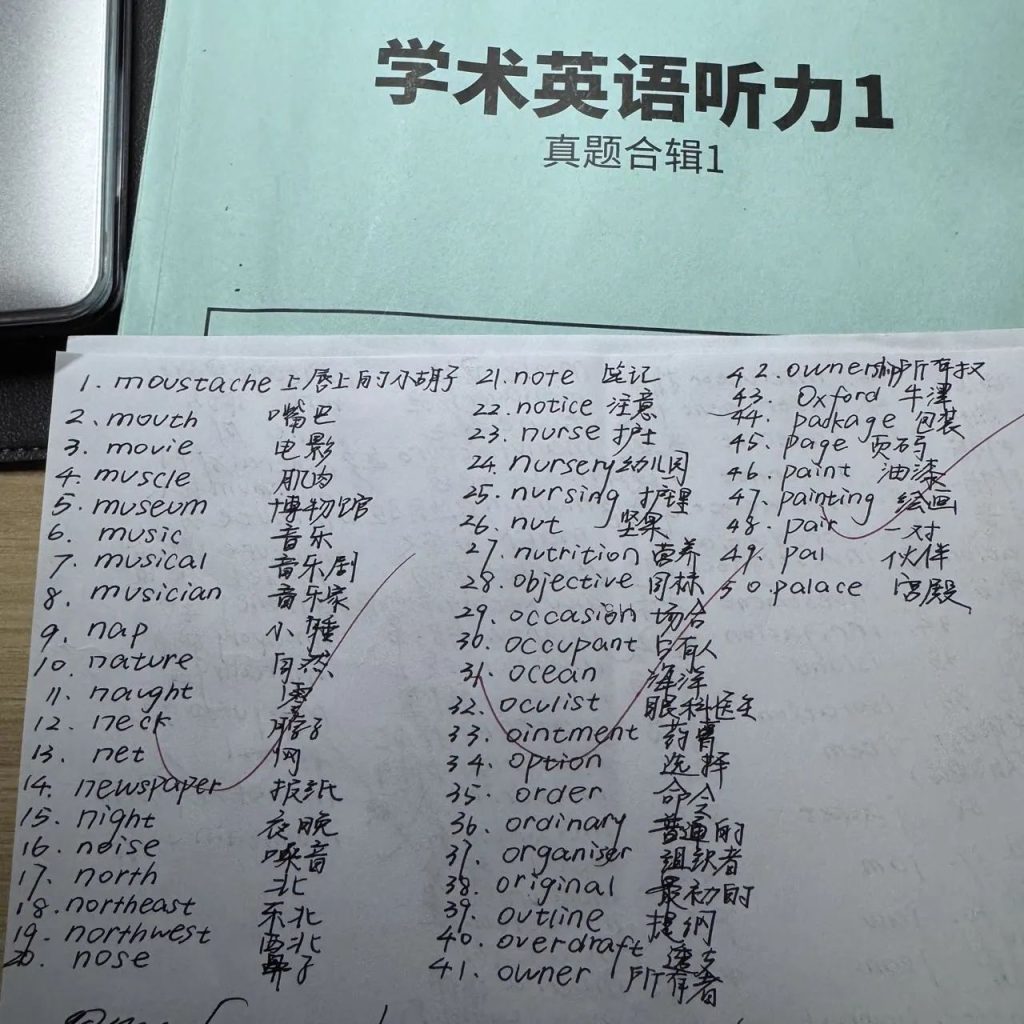 学术英语听力1
真题合辑1
1. moustache 上唇上的小胡子
2. mouth 嘴巴
3. movie 电影
4. muscle 肌肉
5. museum 博物馆
6. music 音乐
7. musical 音乐剧
8. musician 音乐家
9. nap 小睡
10. nature 自然
11. naught 零
12. neck 脖子
13. net 网
14. newspaper 报纸
15. night 夜晚
16. noise 噪音
17. north 北
18. northeast 东北
19. northwest 西北
20. nose 鼻子
21. note 笔记
22. notice 注意
23. nurse 护士
24. nursery 幼儿园
25. nursing 护理
26. nut 坚果
27. nutrition 营养
28. objective 目标
29. occasion 场合
30. occupant 占有人
31. ocean 海洋
32. oculist 眼科医生
33. ointment 药膏
34. option 选择
35. order 命令
36. ordinary 普通的
37. organiser 组织者
38. original 最初的
39. outline 提纲
40. overdraft 透支
41. owner 所有者
42. ownership 所有权
43. Oxford 牛津
44. package 包装
45. page 页码
46. paint 油漆
47. painting 绘画
48. pair 一对
49. pal 伙伴
50. palace 宫殿